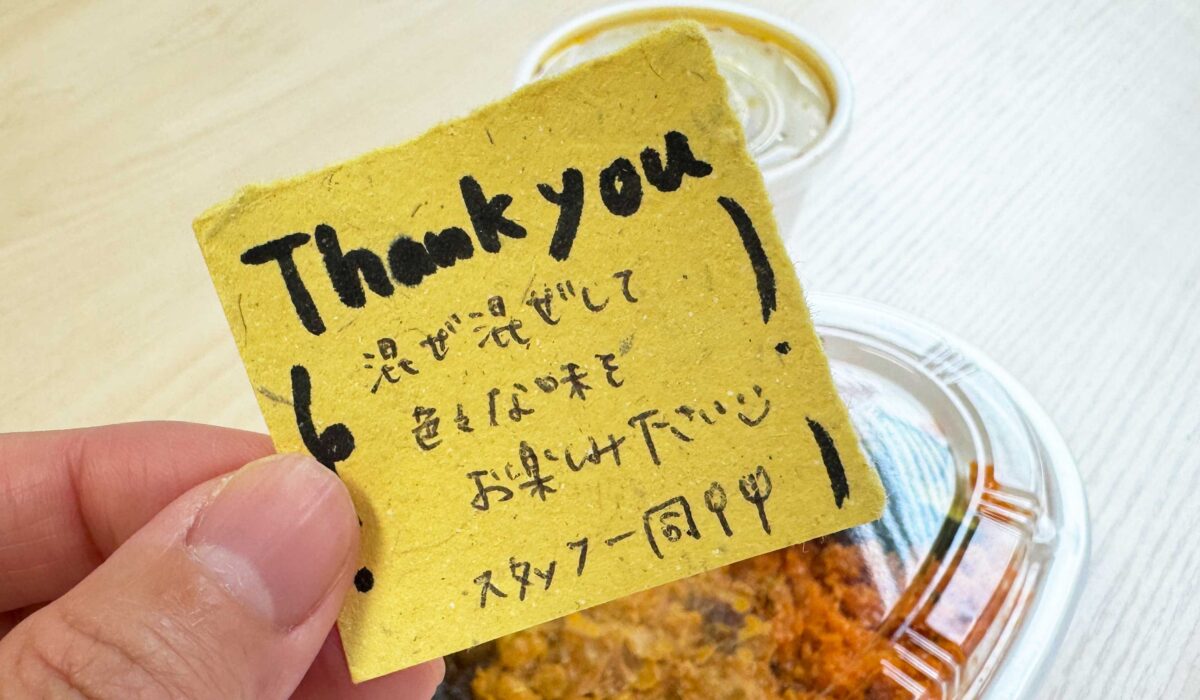 Thank you
混ぜ混ぜして
色々な味を
お楽しみ下さい
スタッフ一同